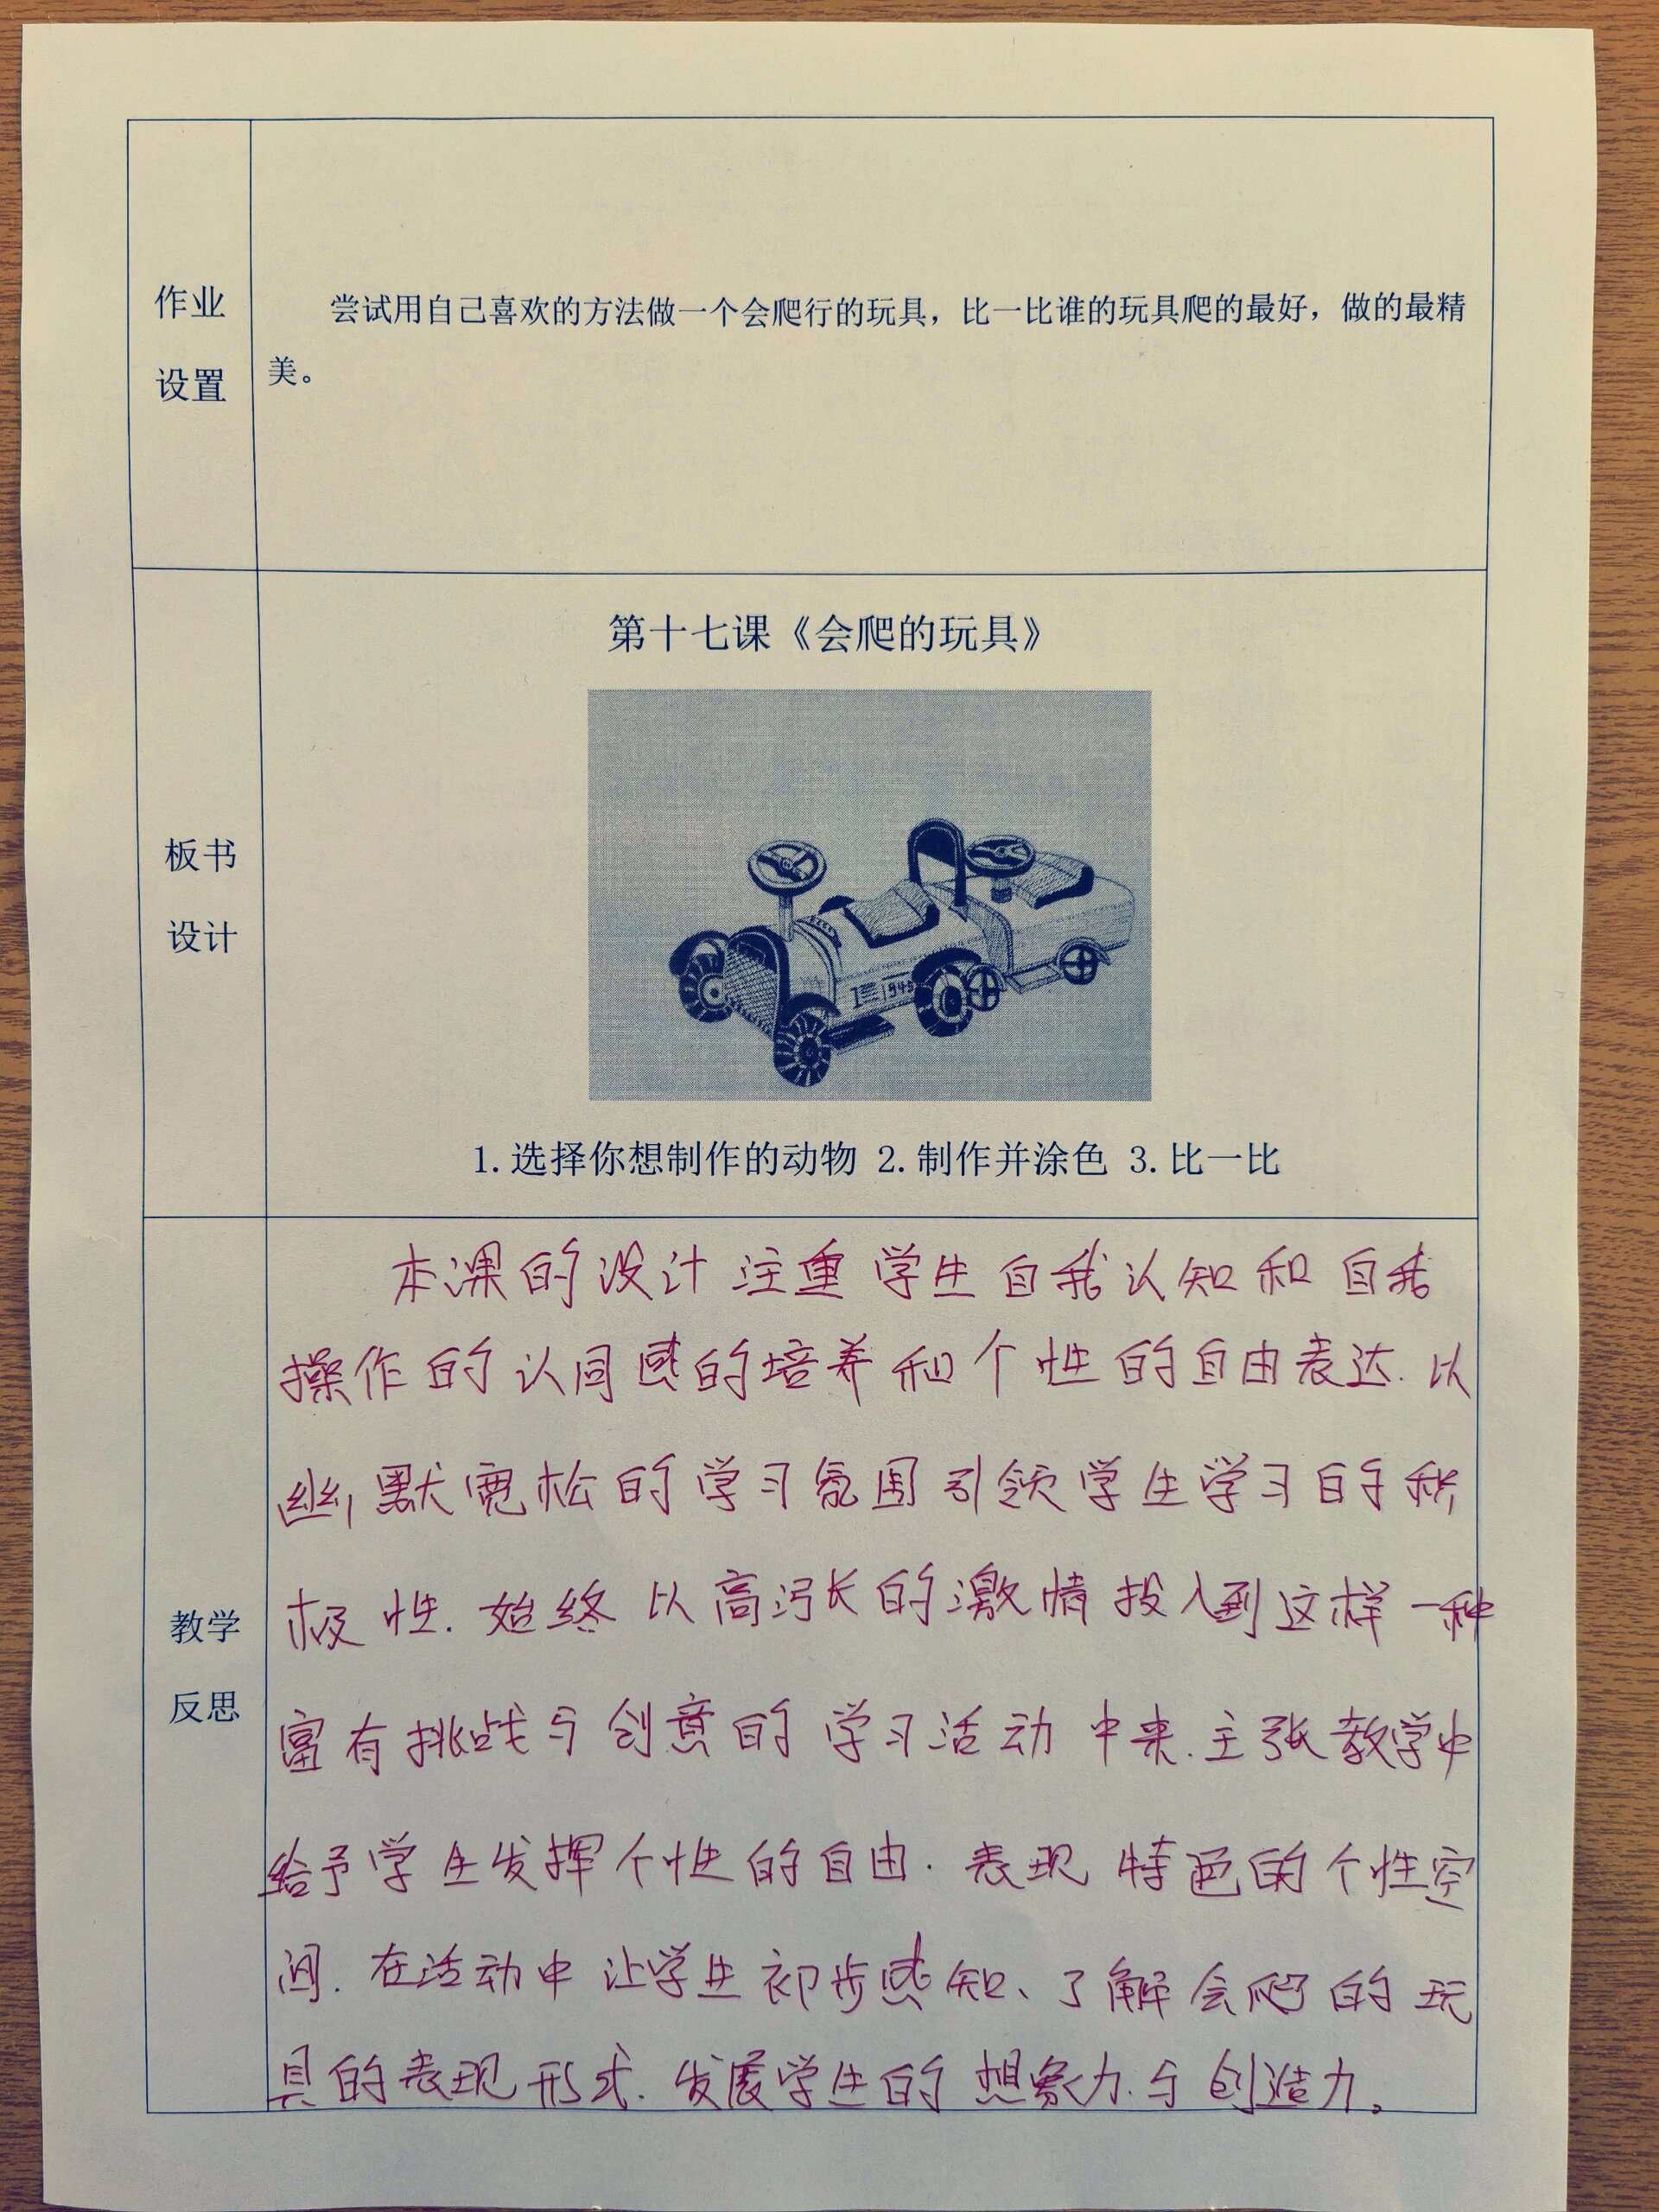 作业
设置
尝试用自己喜欢的方法做一个会爬行的玩具，比一比谁的玩具爬的最好，做的最精
美。
板书
设计
第十七课《会爬的玩具》
1945
1.选择你想制作的动物 2.制作并涂色 3.比一比
教学
反思
本课的设计注重学生自我认知和自我
操作的认同感的培养和个性的自由表达.以
幽默宽松的学习氛围引领学生学习的积
极性.始终以高涨的激情投入到这样一种
富有挑战与创意的学习活动中来.主张教学中
给予学生发挥个性的自由.表现特色的个性空
间.在活动中让学生初步感知、了解会爬的玩
具的表现形式.发展学生的想象力.与创造力。